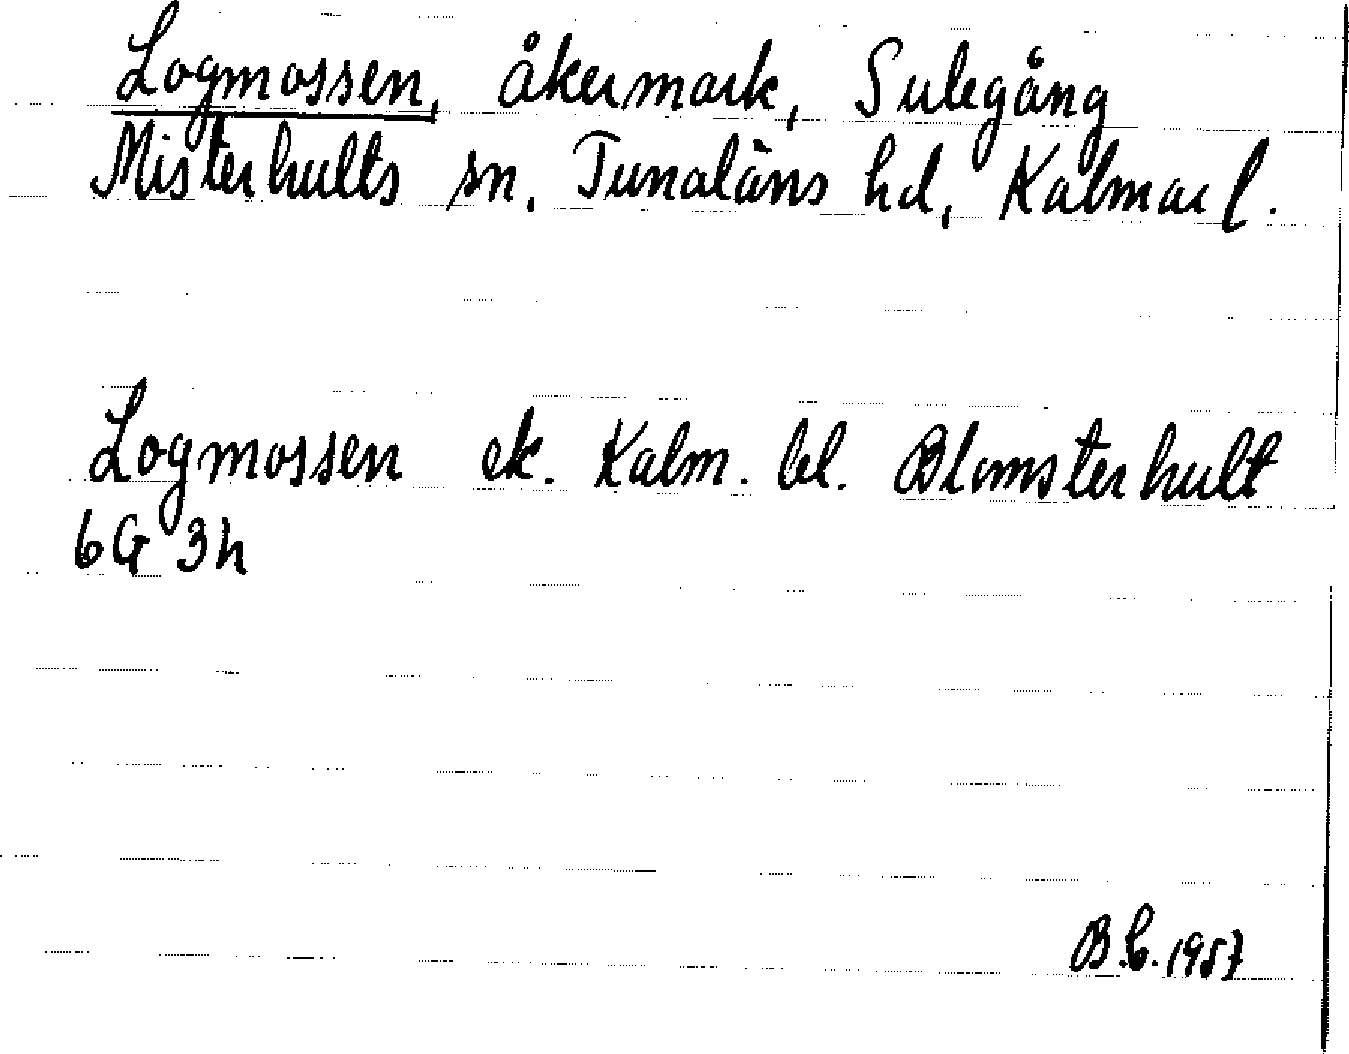 Logmossen, åkermark, Sulegång
Misterhults sn, Tunaläns hd, Kalmar l.
Logmossen ek. Kalm. bl. Blomsterhult
6G 3h
B.C. 1957